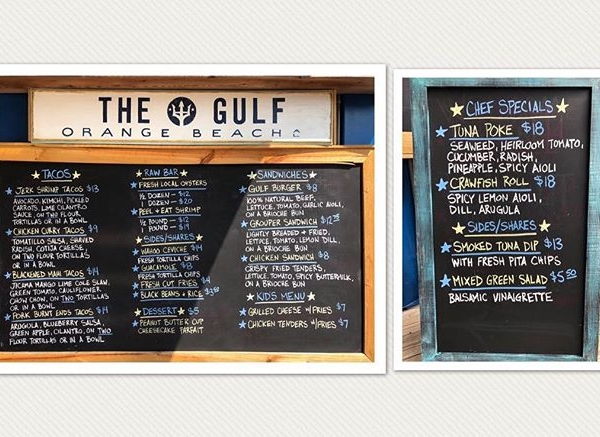 THE GULF
ORANGE BEACH
TACOS
JERK SHRIMP TACOS $13
AVOCADO, KIMCHI, PICKLED
CARROTS, LIME CILANTRO
SAUCE ON TWO FLOUR
TORTILLAS OR IN A BOWL
CHICKEN CURRY TACOS $9
TOMATILLO SALSA, SHAVED
RADISH, COTIJA CHEESE,
ON TWO FLOUR TORTILLAS
OR IN A BOWL
BLACKENED MAHI TACOS $14
JICAMA MANGO LIME COLE SLAW,
GREEN TOMATO, CAULIFLOWER
CHOW CHOW, ON TWO TORTILLAS
OR IN A BOWL
PORK BURNT ENDS TACOS $14
ARUGULA, BLUEBERRY SALSA,
GREEN APPLE, CILANTRO, ON TWO
FLOUR TORTILLAS OR IN A BOWL
RAW BAR
FRESH LOCAL OYSTERS
1/2 DOZEN - $12
1 DOZEN - $20
PEEL + EAT SHRIMP
1/2 POUND - $12
1 POUND - $19
SIDES/SHARES
WAHOO CEVICHE $14
FRESH TORTILLA CHIPS
GUACAMOLE
FRESH TORTILLA CHIPS
FRESH CUT FRIES
BLACK BEANS + RICE
DESSERT $5
PEANUT BUTTER CUP
CHEESECAKE PARFAIT
SANDWICHES
GULF BURGER $8
100% NATURAL BEEF,
LETTUCE, TOMATO, GARLIC AIOLI,
ON A BRIOCHE BUN
GROUPER SANDWICH
LIGHTLY BREADED + FRIED,
LETTUCE, TOMATO, LEMON DILL,
ON A BRIOCHE BUN
CHICKEN SANDWICH $8
CRISPY FRIED TENDERS,
LETTUCE, TOMATO, SPICY BUTTERMILK,
ON A BRIOCHE BUN
KIDS MENU
GRILLED CHEESE W/FRIES $7
CHICKEN TENDERS W/FRIES $7
CHEF SPECIALS
TUNA POKE $18
SEAWEED, HEIRLOOM TOMATO,
CUCUMBER, RADISH,
PINEAPPLE, SPICY AIOLI
CRAWFISH ROLL $18
SPICY LEMON AIOLI,
DILL, ARUGULA
SIDES/SHARES
SMOKED TUNA DIP $13
WITH FRESH PITA CHIPS
MIXED GREEN SALAD $5.50
BALSAMIC VINAIGRETTE